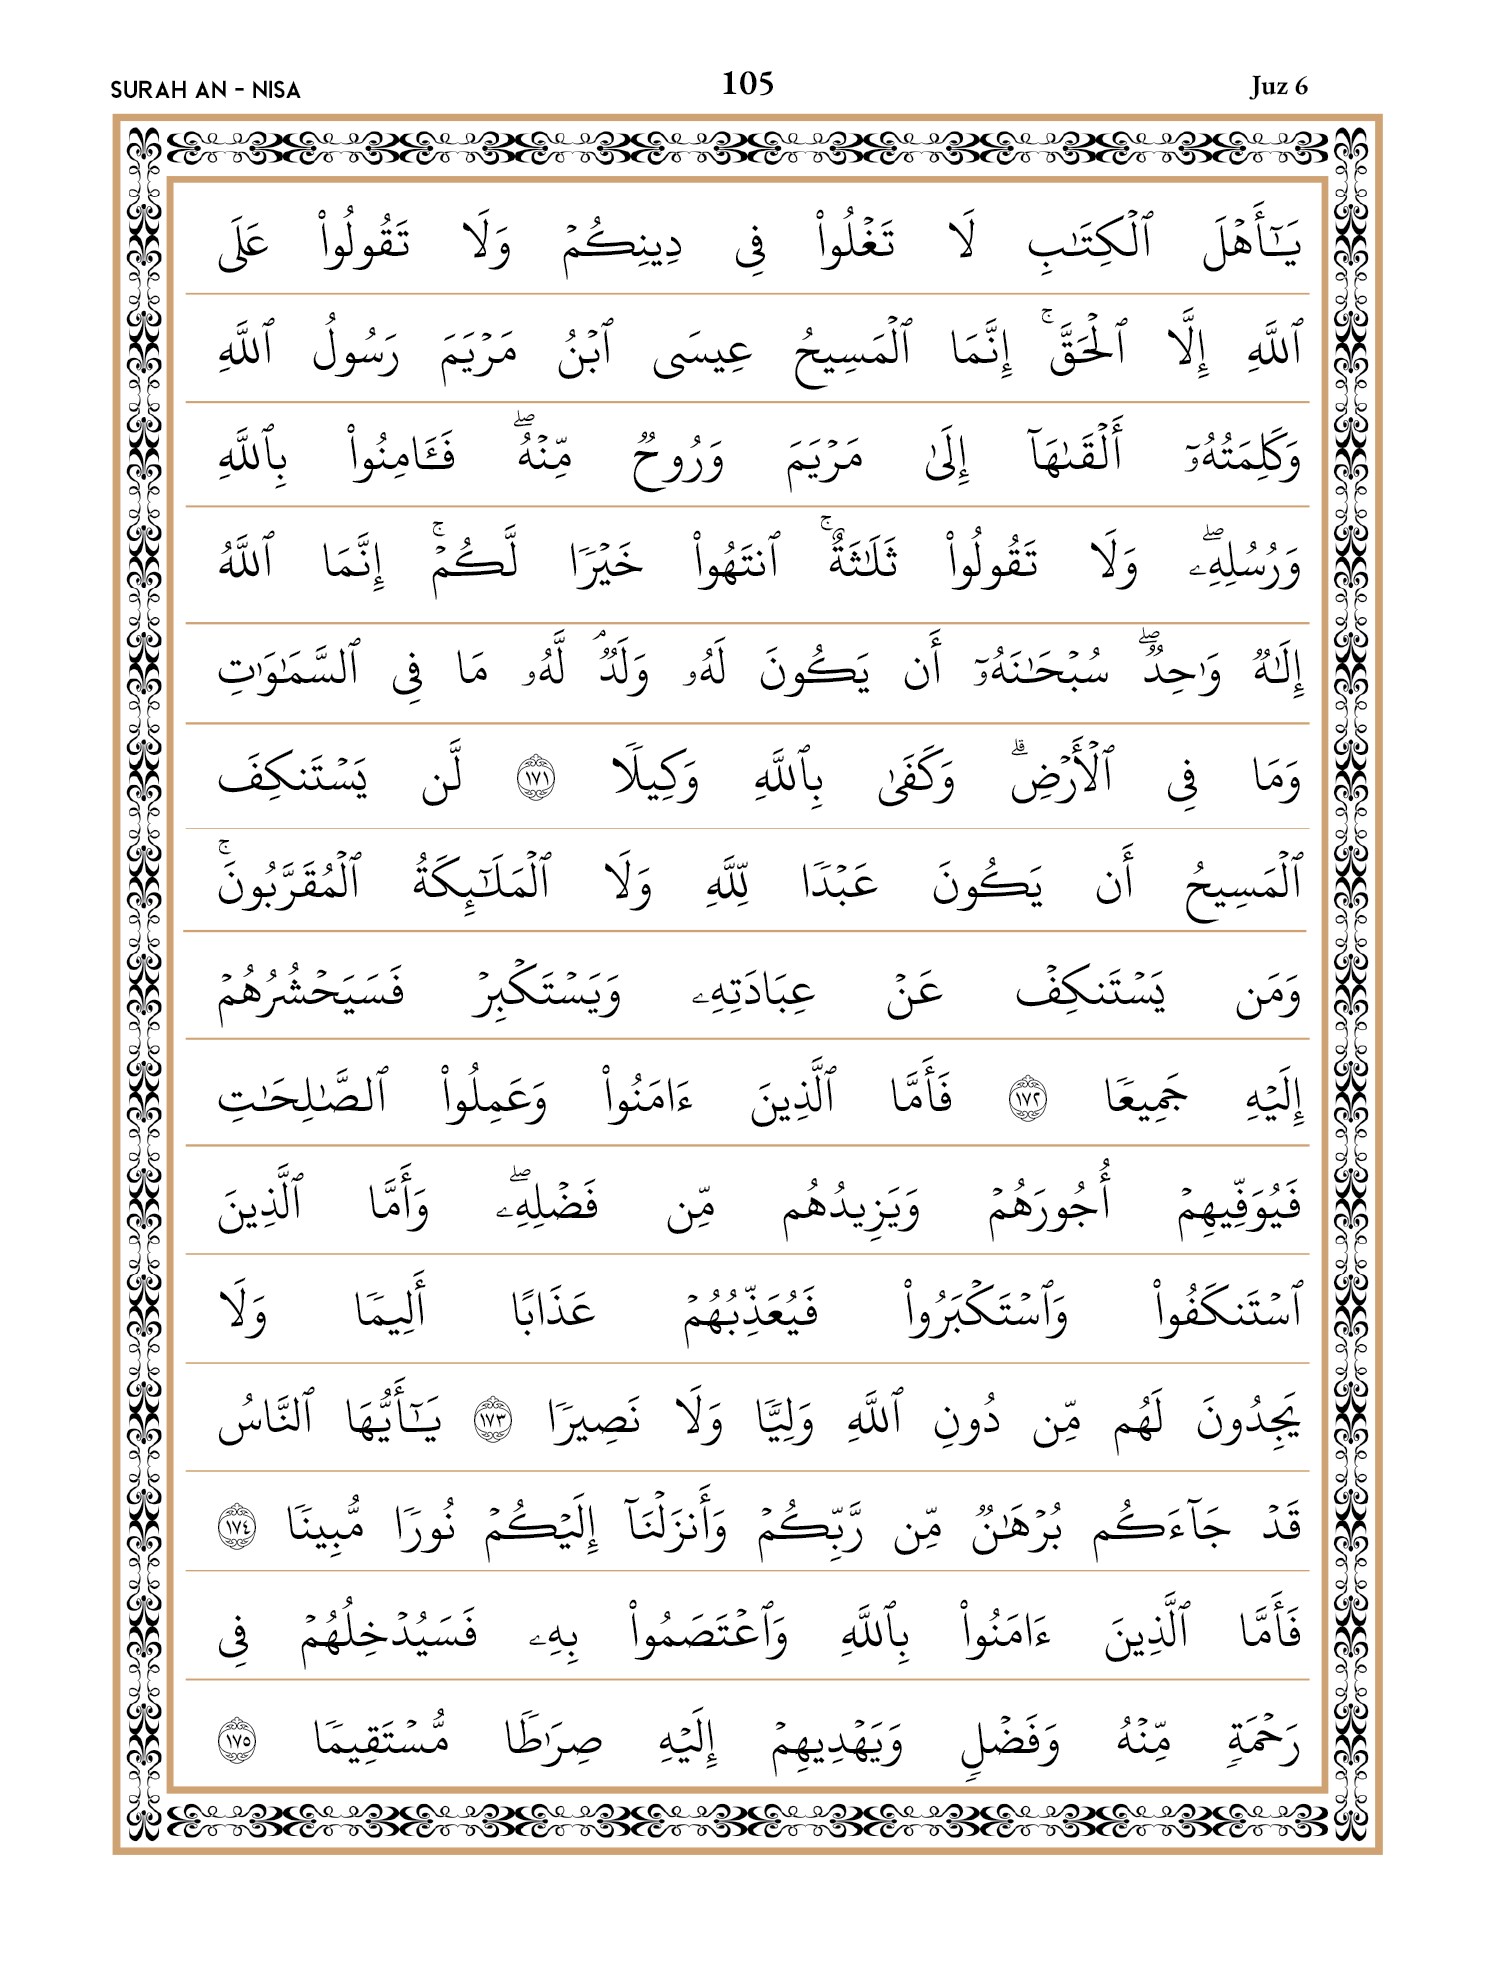 SURAH AN - NISA 105 Juz 6
يَـٰٓأَهْلَ ٱلْكِتَـٰبِ لَا تَغْلُوا۟ فِى دِينِكُمْ وَلَا تَقُولُوا۟ عَلَى
ٱللَّهِ إِلَّا ٱلْحَقَّ ۚ إِنَّمَا ٱلْمَسِيحُ عِيسَى ٱبْنُ مَرْيَمَ رَسُولُ ٱللَّهِ
وَكَلِمَتُهُۥٓ أَلْقَىٰهَآ إِلَىٰ مَرْيَمَ وَرُوحٌ مِّنْهُ ۖ فَـَٔامِنُوا۟ بِٱللَّهِ
وَرُسُلِهِۦ ۖ وَلَا تَقُولُوا۟ ثَلَـٰثَةٌ ۚ ٱنتَهُوا۟ خَيْرًا لَّكُمْ ۚ إِنَّمَا ٱللَّهُ
إِلَـٰهٌ وَٰحِدٌ ۖ سُبْحَـٰنَهُۥٓ أَن يَكُونَ لَهُۥ وَلَدٌ ۘ لَّهُۥ مَا فِى ٱلسَّمَـٰوَٰتِ
وَمَا فِى ٱلْأَرْضِ ۗ وَكَفَىٰ بِٱللَّهِ وَكِيلًا ١٧١ لَّن يَسْتَنكِفَ
ٱلْمَسِيحُ أَن يَكُونَ عَبْدًا لِّلَّهِ وَلَا ٱلْمَلَـٰٓئِكَةُ ٱلْمُقَرَّبُونَ ۚ
وَمَن يَسْتَنكِفْ عَنْ عِبَادَتِهِۦ وَيَسْتَكْبِرْ فَسَيَحْشُرُهُمْ
إِلَيْهِ جَمِيعًا ١٧٢ فَأَمَّا ٱلَّذِينَ ءَامَنُوا۟ وَعَمِلُوا۟ ٱلصَّـٰلِحَـٰتِ
فَيُوَفِّيهِمْ أُجُورَهُمْ وَيَزِيدُهُم مِّن فَضْلِهِۦ ۖ وَأَمَّا ٱلَّذِينَ
ٱسْتَنكَفُوا۟ وَٱسْتَكْبَرُوا۟ فَيُعَذِّبُهُمْ عَذَابًا أَلِيمًا وَلَا
يَجِدُونَ لَهُم مِّن دُونِ ٱللَّهِ وَلِيًّا وَلَا نَصِيرًا ١٧٣ يَـٰٓأَيُّهَا ٱلنَّاسُ
قَدْ جَآءَكُم بُرْهَـٰنٌ مِّن رَّبِّكُمْ وَأَنزَلْنَآ إِلَيْكُمْ نُورًا مُّبِينًا ١٧٤
فَأَمَّا ٱلَّذِينَ ءَامَنُوا۟ بِٱللَّهِ وَٱعْتَصَمُوا۟ بِهِۦ فَسَيُدْخِلُهُمْ فِى
رَحْمَةٍ مِّنْهُ وَفَضْلٍ وَيَهْدِيهِمْ إِلَيْهِ صِرَٰطًا مُّسْتَقِيمًا ١٧٥